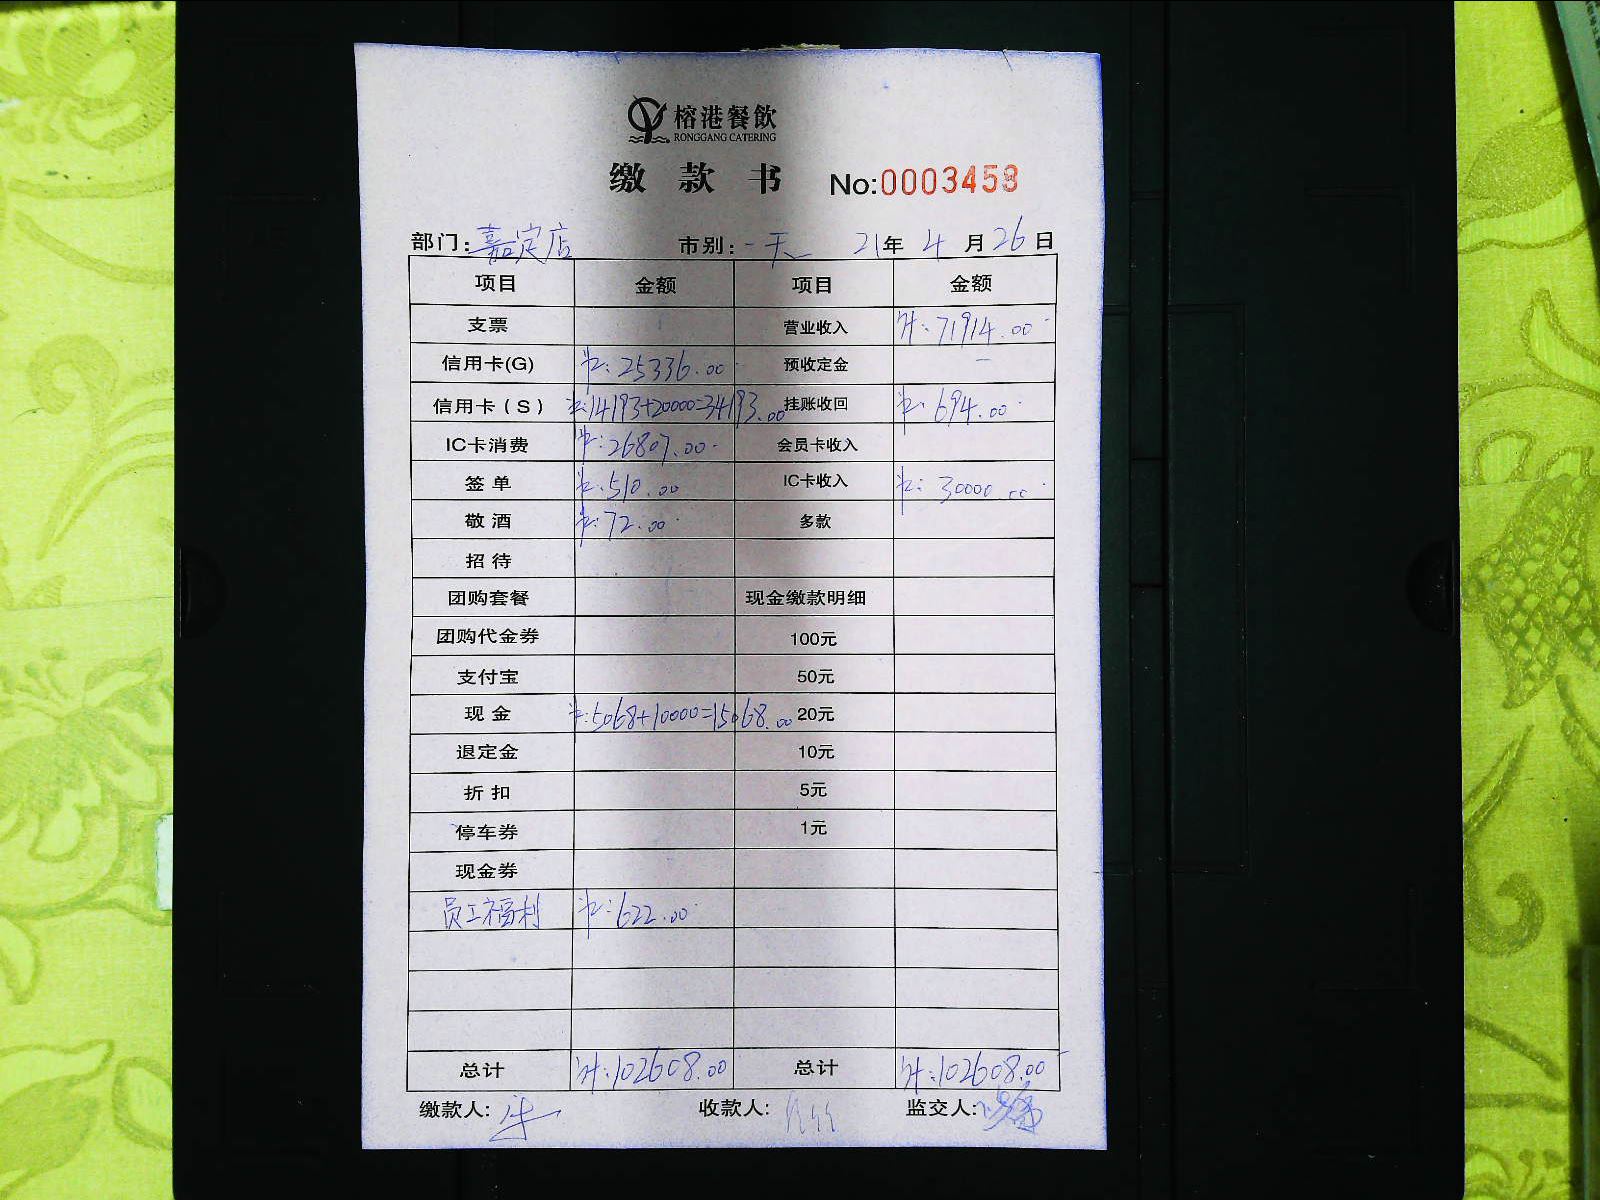 榕港餐飲
RONGGANG CATERING
缴款书 No:0003458
部门: 嘉定店 市别: 一天 21年 4月 26日
项目 金额 项目 金额
支票 营业收入 计: 71914.00
信用卡(G) 25336.00 预收定金 —
信用卡(S) 14193+20000=34193.00 挂账收回 694.00
IC卡消费 26807.00 会员卡收入
签单 510.00 IC卡收入 30000.00
敬酒 72.00 多款
招待
团购套餐 现金缴款明细
团购代金券 100元
支付宝 50元
现金 5068+10000=15068.00 20元
退定金 10元
折扣 5元
停车券 1元
现金券
员工福利 622.00
总计 计: 102608.00 总计 计: 102608.00
缴款人: 收款人: 监交人: